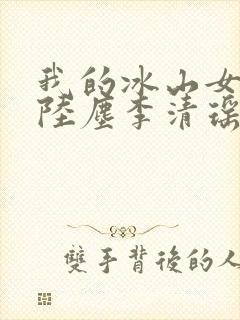 我的冰山女
陸塵李清瑶
雙手背後的人